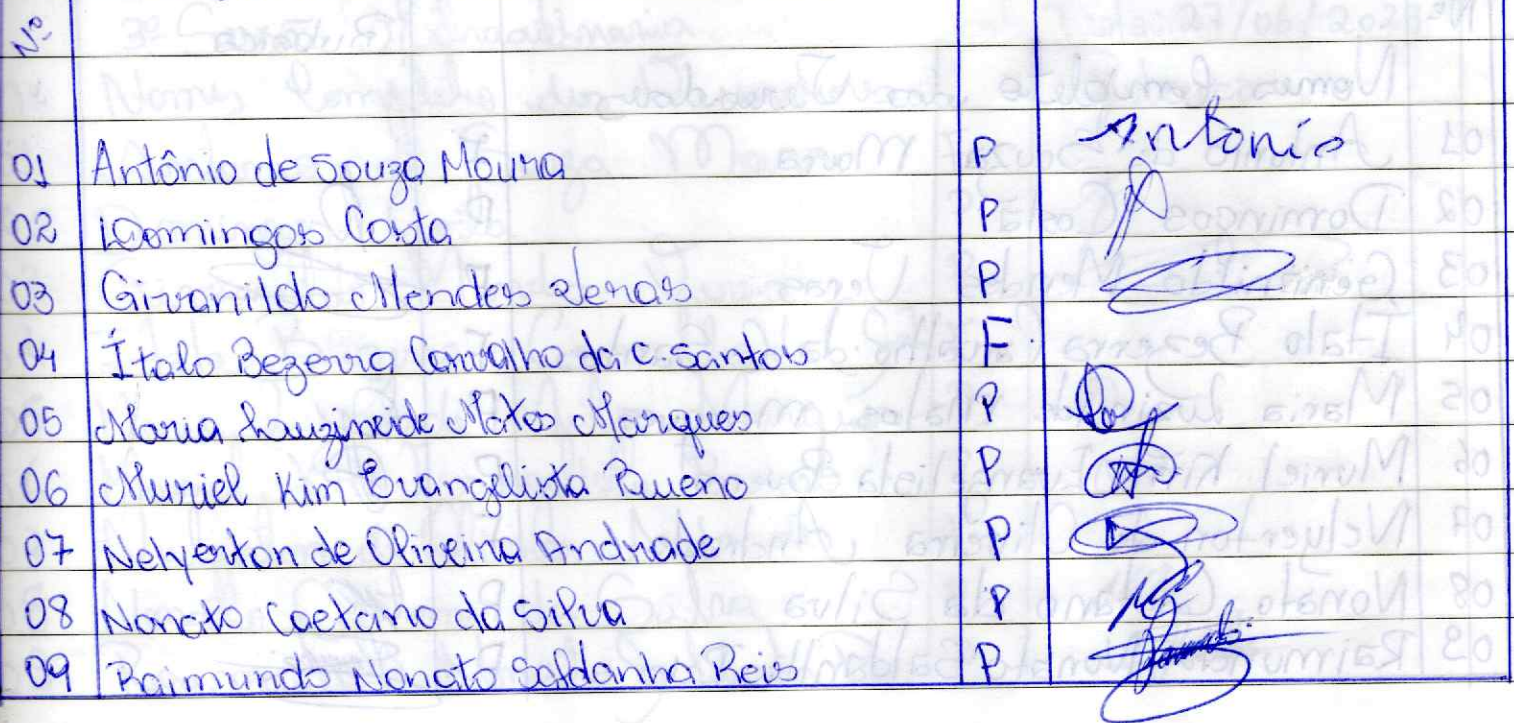 Nº
01 Antônio de Souza Moura P Antonio
02 Domingos Costa P
03 Givanildo Mendes Veras P
04 Ítalo Bezerra Carvalho da C. Santos F.
05 Maria Lauzineide Matos Marques P
06 Muriel Kim Evangelista Bueno P
07 Nelyerton de Oliveira Andrade P
08 Nonato Caetano da Silva P
09 Raimundo Nonato Saldanha Reis P